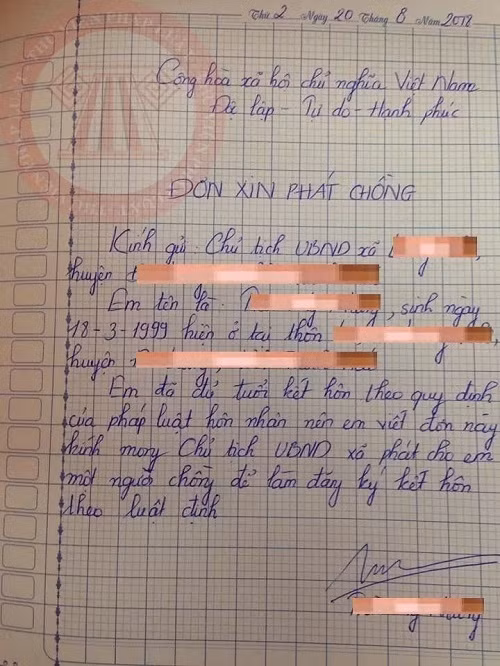 Thứ 2 Ngày 20 Tháng 8 Năm 2018
Cộng hòa xã hội chủ nghĩa Việt Nam
Độ lập - Tự do - Hạnh phúc
ĐƠN XIN PHÁT CHỒNG
Kính gửi: Chủ tịch UBND xã
huyện
Em tên là: , sinh ngày
18-3-1999 hiện ở tại thôn
huyện
Em đã đủ tuổi kết hôn theo quy định
của pháp luật hôn nhân nên em viết đơn này
kính mong Chủ tịch UBND xã phát cho em
một người chồng để làm đăng ký kết hôn
theo luật định